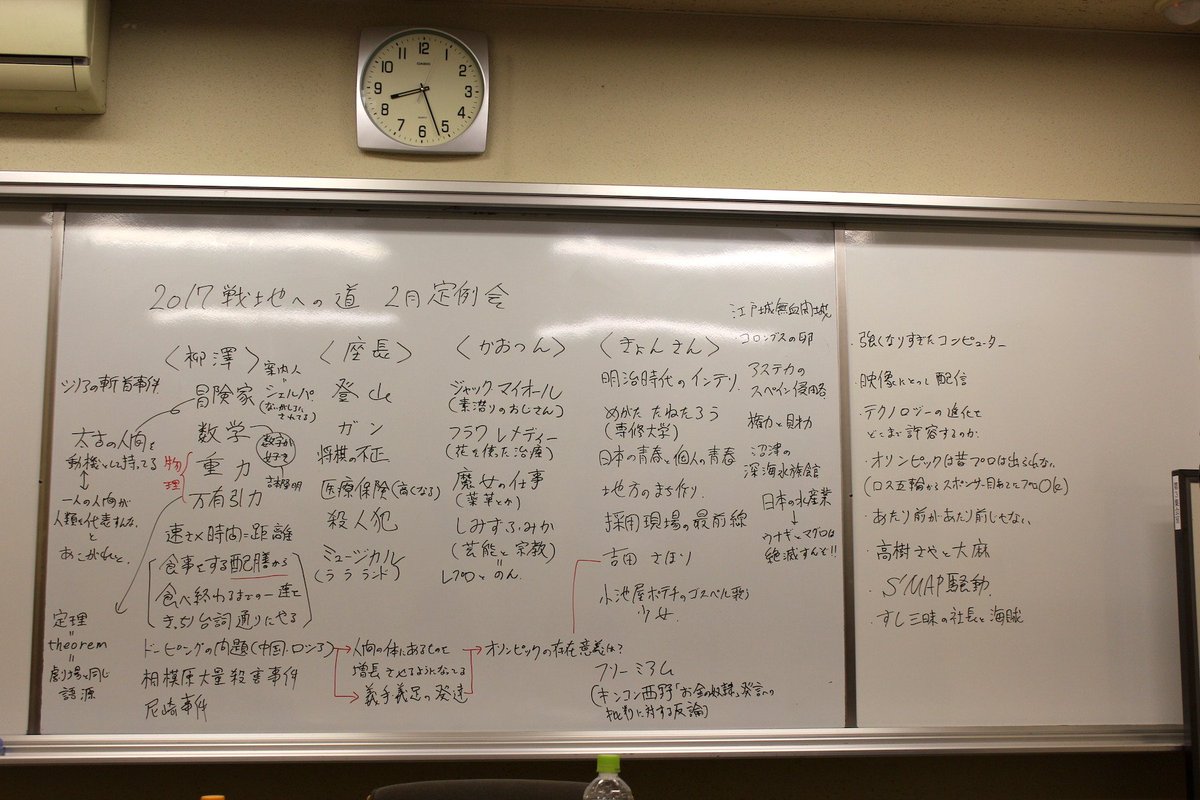 12
1
2
3
4
5
6
7
8
9
10
11
CASIO
2017 戦地への道 2月定例会
シリアの斬首事件
太古の人間を
動機として持ってる
一人の人間が
人類を代表すんな、
と
あこがれと、
定理
=
theorem
=
劇場と同じ
語源
〈柳澤〉
冒険家
案内人
シェルパ
(ないがしろに
されてる)
数学
数字が
好き
重力
物
理
万有引力
速さ×時間=距離
食事をする配膳から
食べ終わるまでの一連を
きっちり台詞通りにやる
ドーピングの問題(中国、ロシア)
相模原大量殺害事件
尼崎事件
〈座長〉
登山
ガン
将棋の不正
医療保険(高くなる)
殺人犯
ミュージカル
(ララランド)
人間の体にあるものを
増長させるようになってる
義手義足の発達
〈かおつん〉
ジャックマイオール
(素潜りのおじさん)
フラワーレメディー
(花を使った治療)
魔女の仕事
(薬草とか)
しみずふみか
(芸能と宗教)
=
レプロとのん。
オリンピックの存在意義は?
〈きょんさん〉
明治時代のインテリ、
めがた たねたろう
(専修大学)
日本の青春と個人の青春
地方のまち作り、
採用現場の最前線
吉田 さほり
小池屋ポテチのゴスペル歌う
少女、
フリーミアム
(キンコン西野「お金の奴隷」発言への
批判に対する反論)
江戸城無血開城
・コロンブスの卵
アステカの
スペイン侵略
権力と財力
沼津の
深海水族館
日本の水産業
ウナギとマグロは
絶滅すんぞ!!
・強くなりすぎたコンピューター
・映像にとって配信
・テクノロジーの進化を
どこまで許容するのか、
・オリンピックは昔プロは出られない
(ロス五輪からスポンサー目あてでプロOK)
・あたり前があたり前じゃない、
・高樹さやと大麻
・SMAP騒動
・すし三昧の社長と海賊